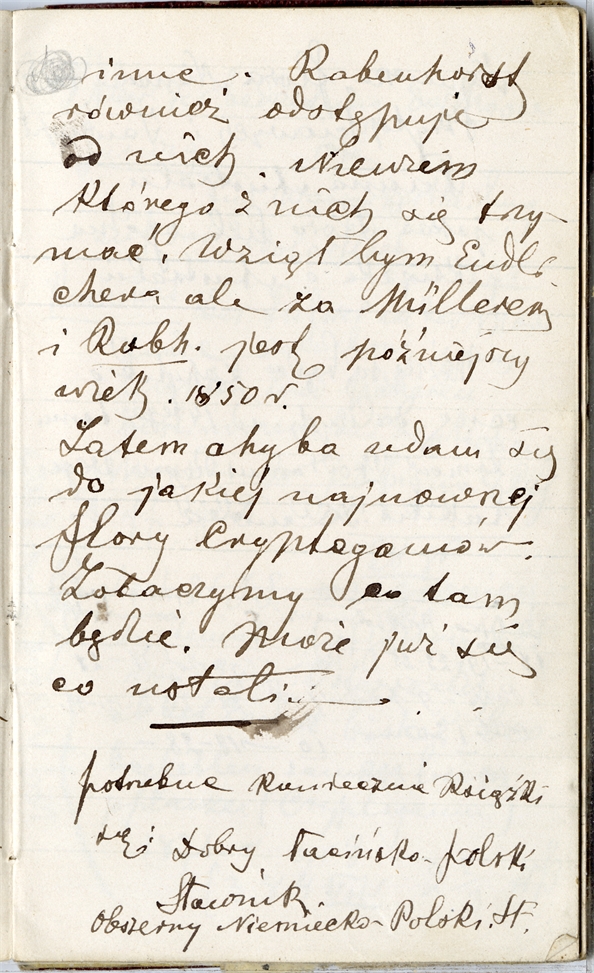 inne. Rabenhorst
również odstępuje
od nich. Niewiem
którego z nich się trzy-
mać. Wziął bym Endli-
chera ale za Müllerem
i Rabh. jest późniejszy
wiek. 1850 r.
Zatem chyba udam się
do jakiej najnowszej
flory Cryptogamów.
Zobaczymy co tam
będzie. Może już się
co
potrzebne koniecznie Książki
są: Dobry łacińsko-polski
Słownik
Obszerny Niemiecko-Polski. Sł.